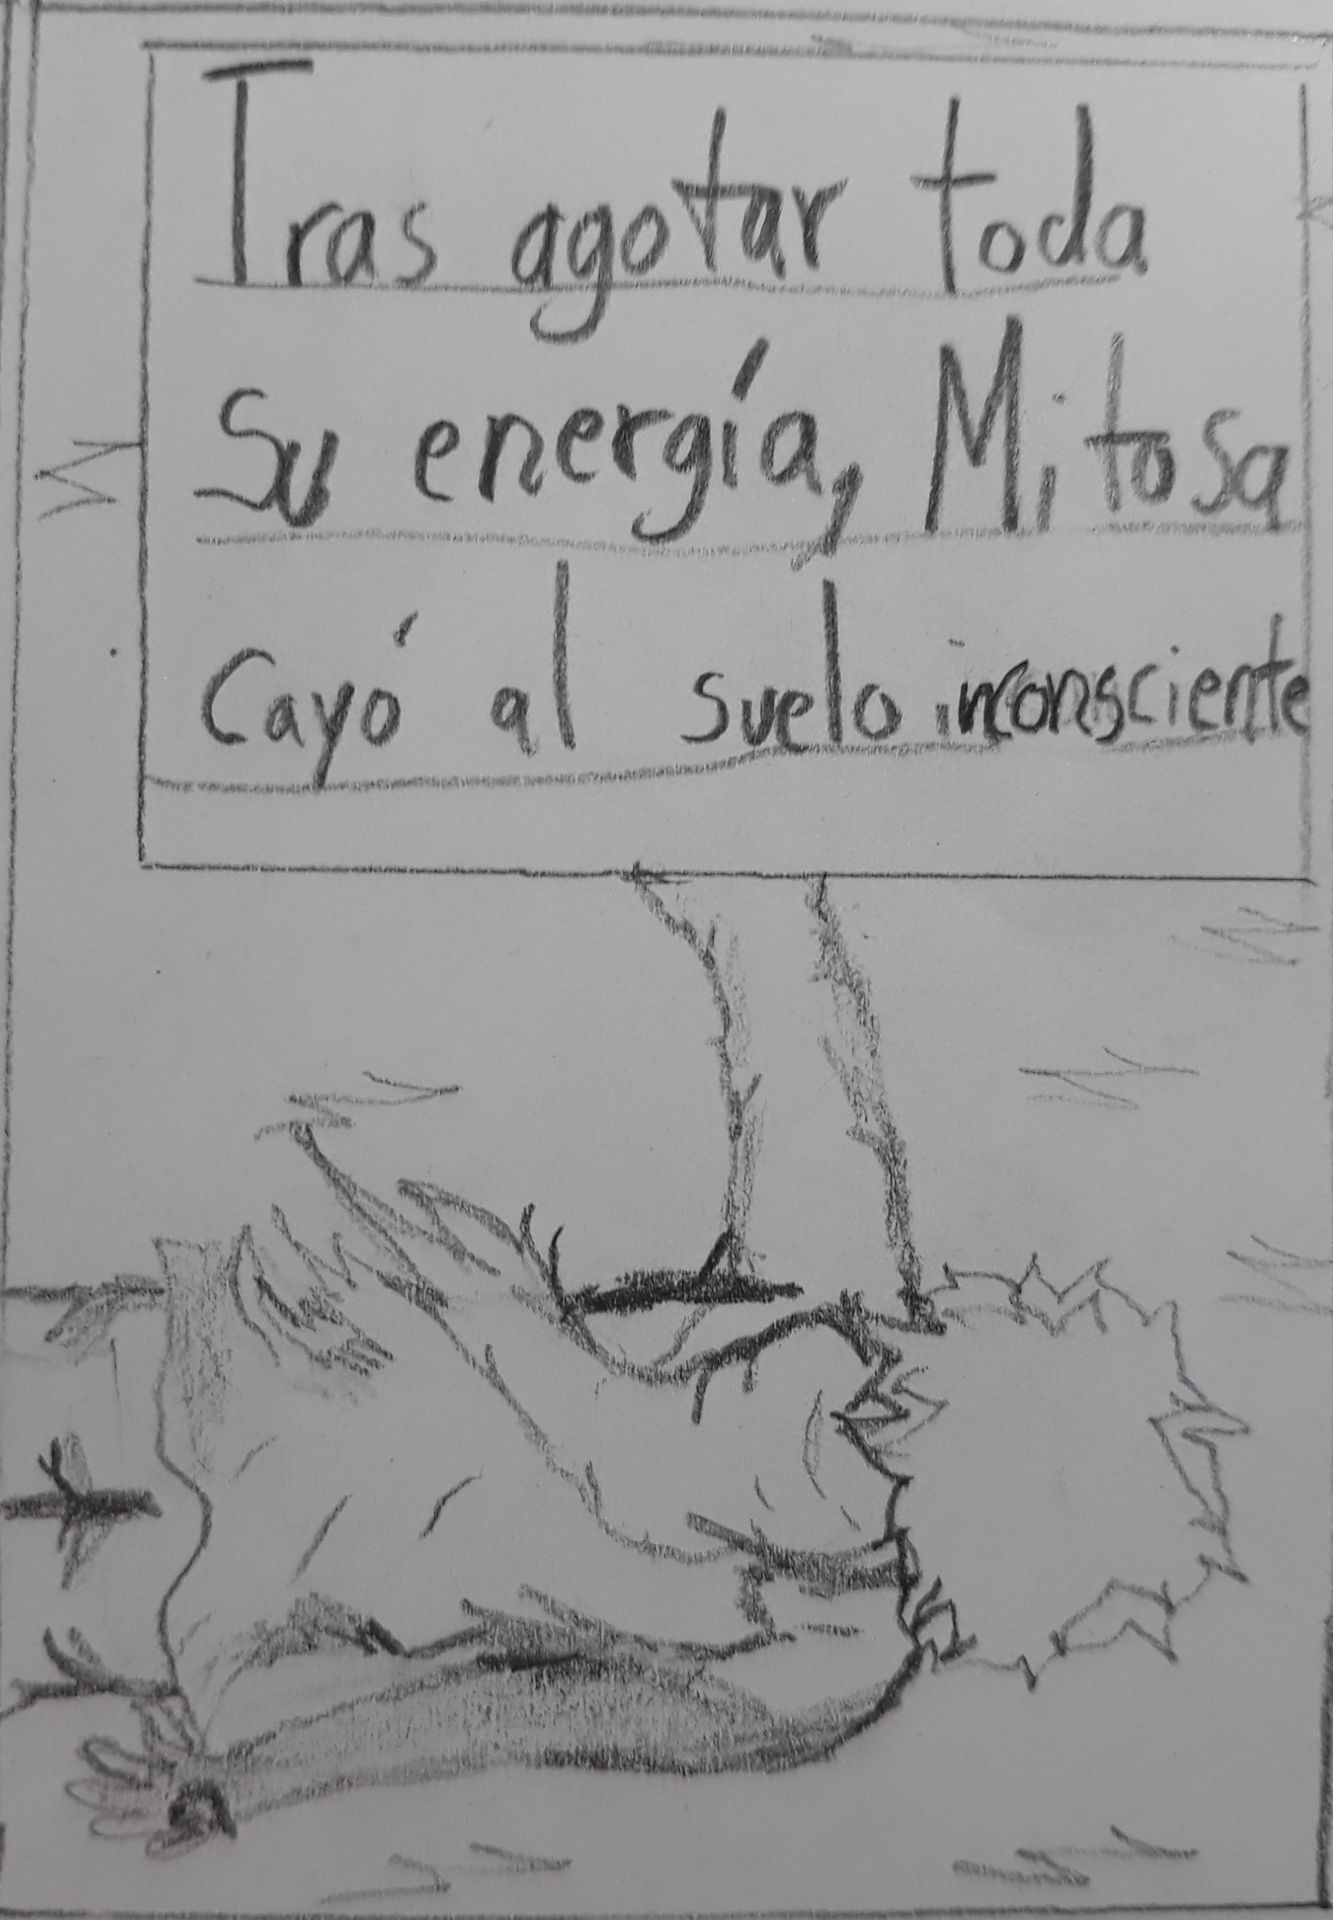 Tras agotar toda
Su energía, Mitosa
Cayó al suelo inconsciente